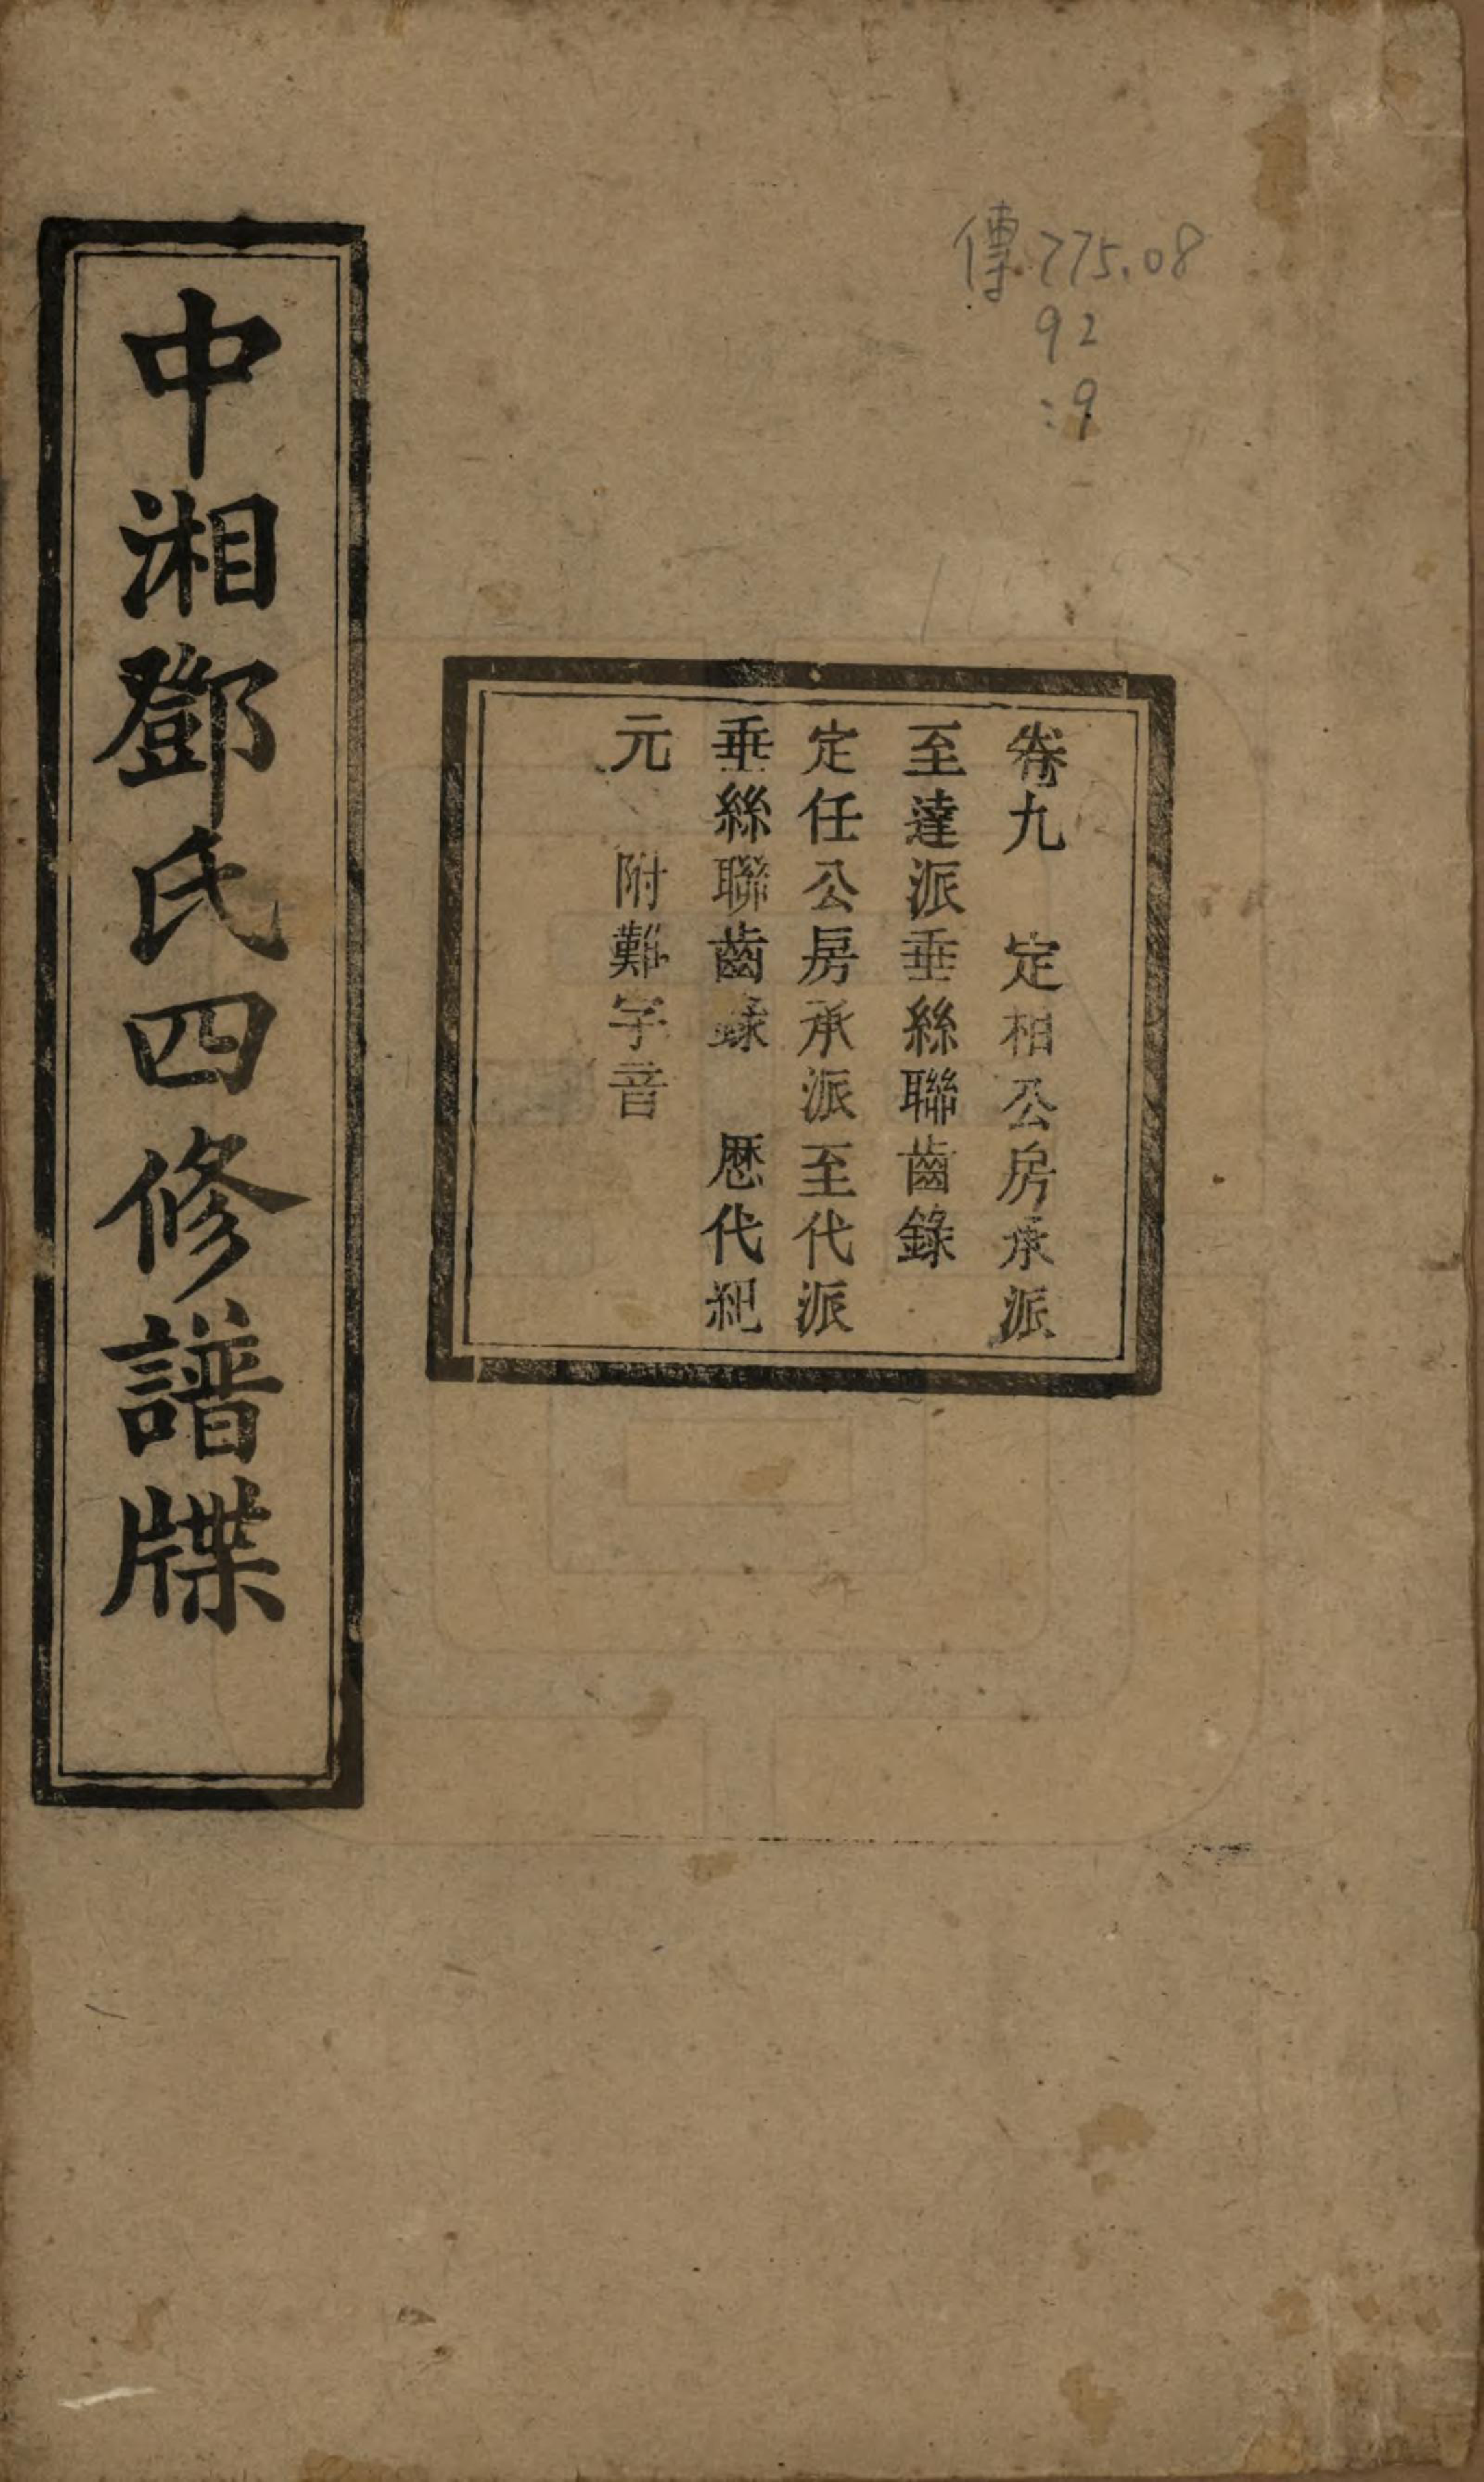 傳775.08
92
:9
卷九 定相公房承派
至達派垂絲聯齒錄
定任公房承派至代派
垂絲聯齒錄 歴代紀
元 附難字音
中湘鄧氏四修譜牒